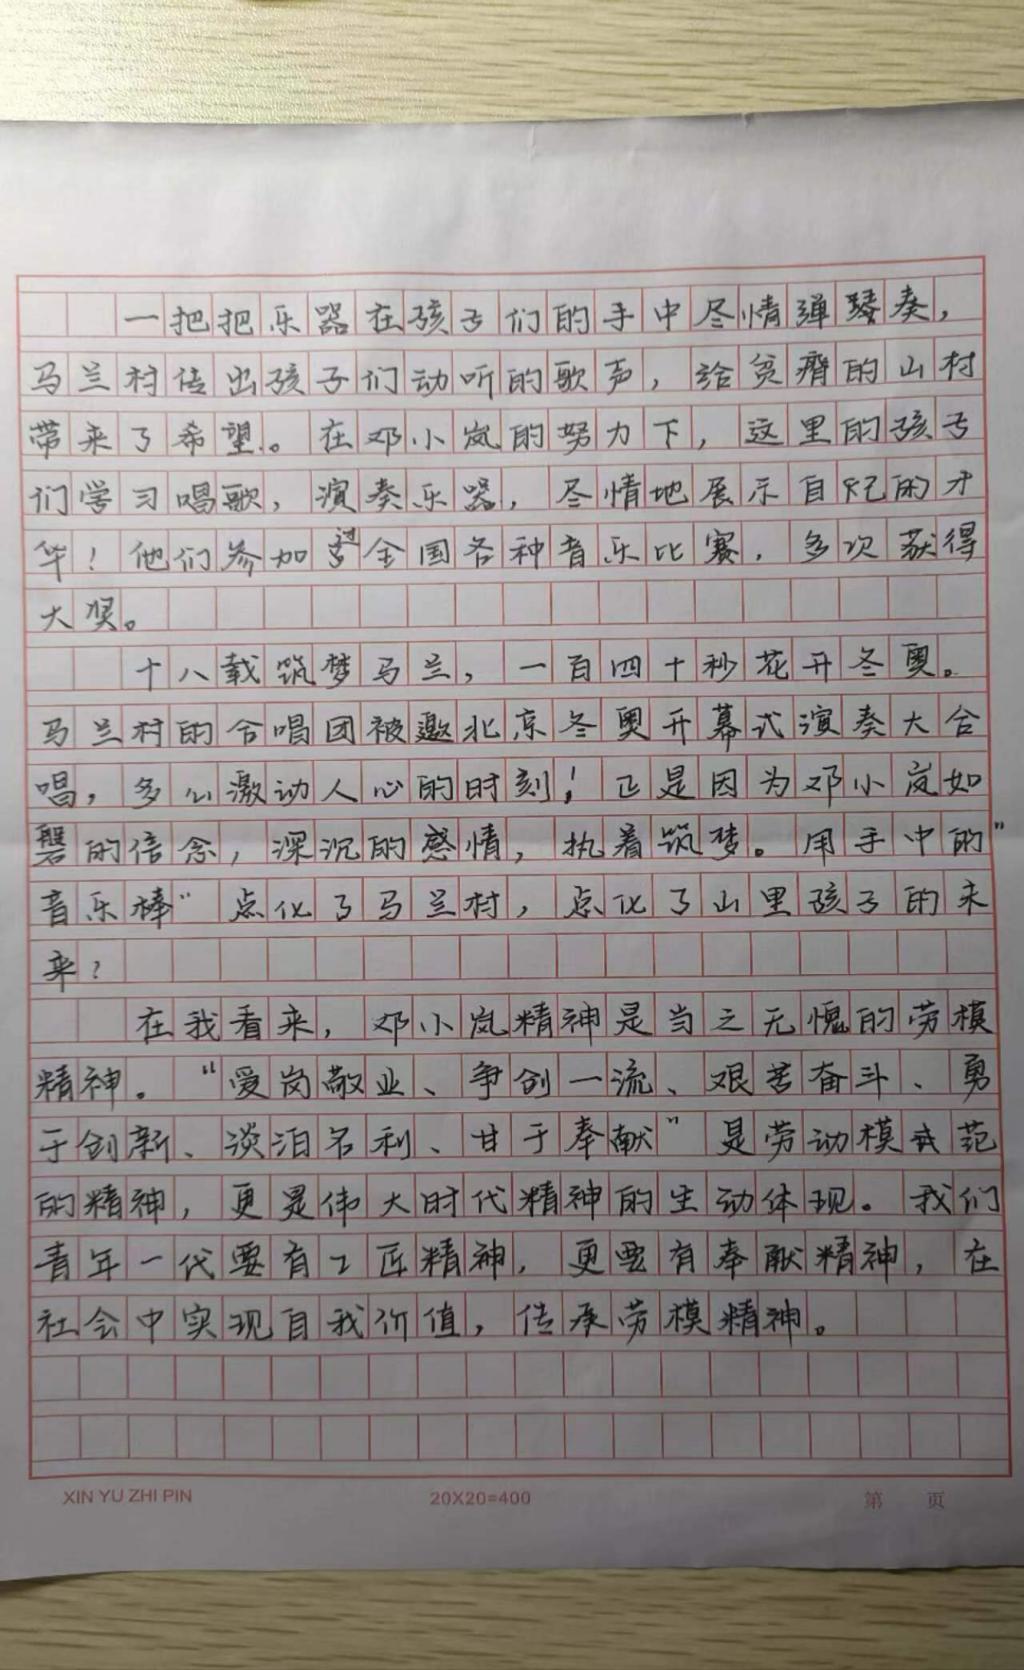 一把把乐器在孩子们的手中尽情弹琴奏，
马兰村传出孩子们动听的歌声，给贫瘠的山村
带来了希望。在邓小岚的努力下，这里的孩子
们学习唱歌，演奏乐器，尽情地展示自己的才
华！他们参加过全国各种音乐比赛，多次获得
大奖。
十八载筑梦马兰，一百四十秒花开冬奥。
马兰村的合唱团被邀北京冬奥开幕式演奏大合
唱，多么激动人心的时刻！正是因为邓小岚如
磐的信念，深沉的感情，执着筑梦。用手中的”
音乐棒“点化了马兰村，点化了山里孩子的未
来？
在我看来，邓小岚精神是当之无愧的劳模
精神。“爱岗敬业、争创一流、艰苦奋斗、勇
于创新、淡泊名利、甘于奉献”是劳动模式范
的精神，更是伟大时代精神的生动体现。我们
青年一代要有工匠精神，更要有奉献精神，在
社会中实现自我价值，传承劳模精神。
XIN YU ZHI PIN 20X20=400 第 页